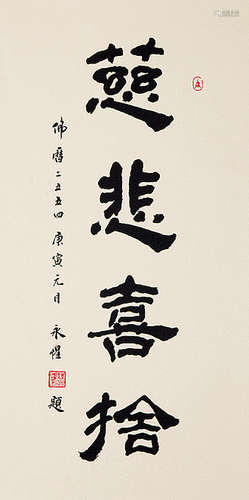 慈悲喜捨
佛曆二五五四庚寅元月 永惺 題